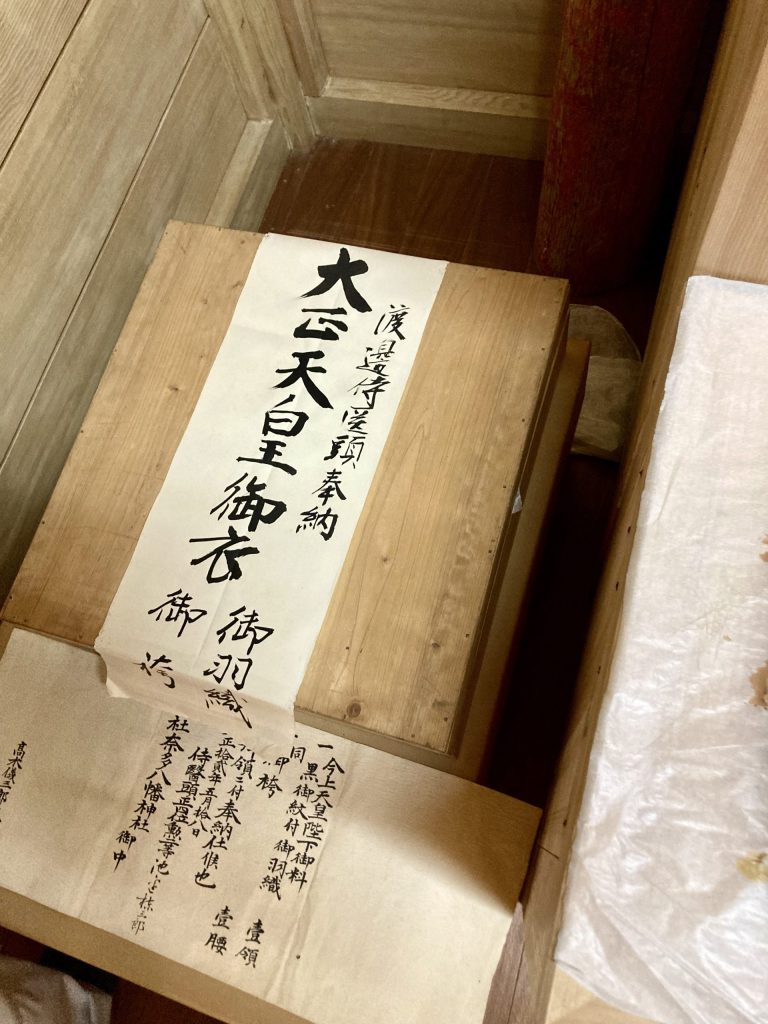 渡邉侍従頭奉納
大正天皇御衣
御羽織
御袴
一今上天皇陛下御料
黒御紋付御羽織 壹領
同 袴 壹腰
領二付奉納仕候也
正拾貳年五月拾八日
侍醫頭 勲 等池
社奈多八幡神社 御中
高木 三郎